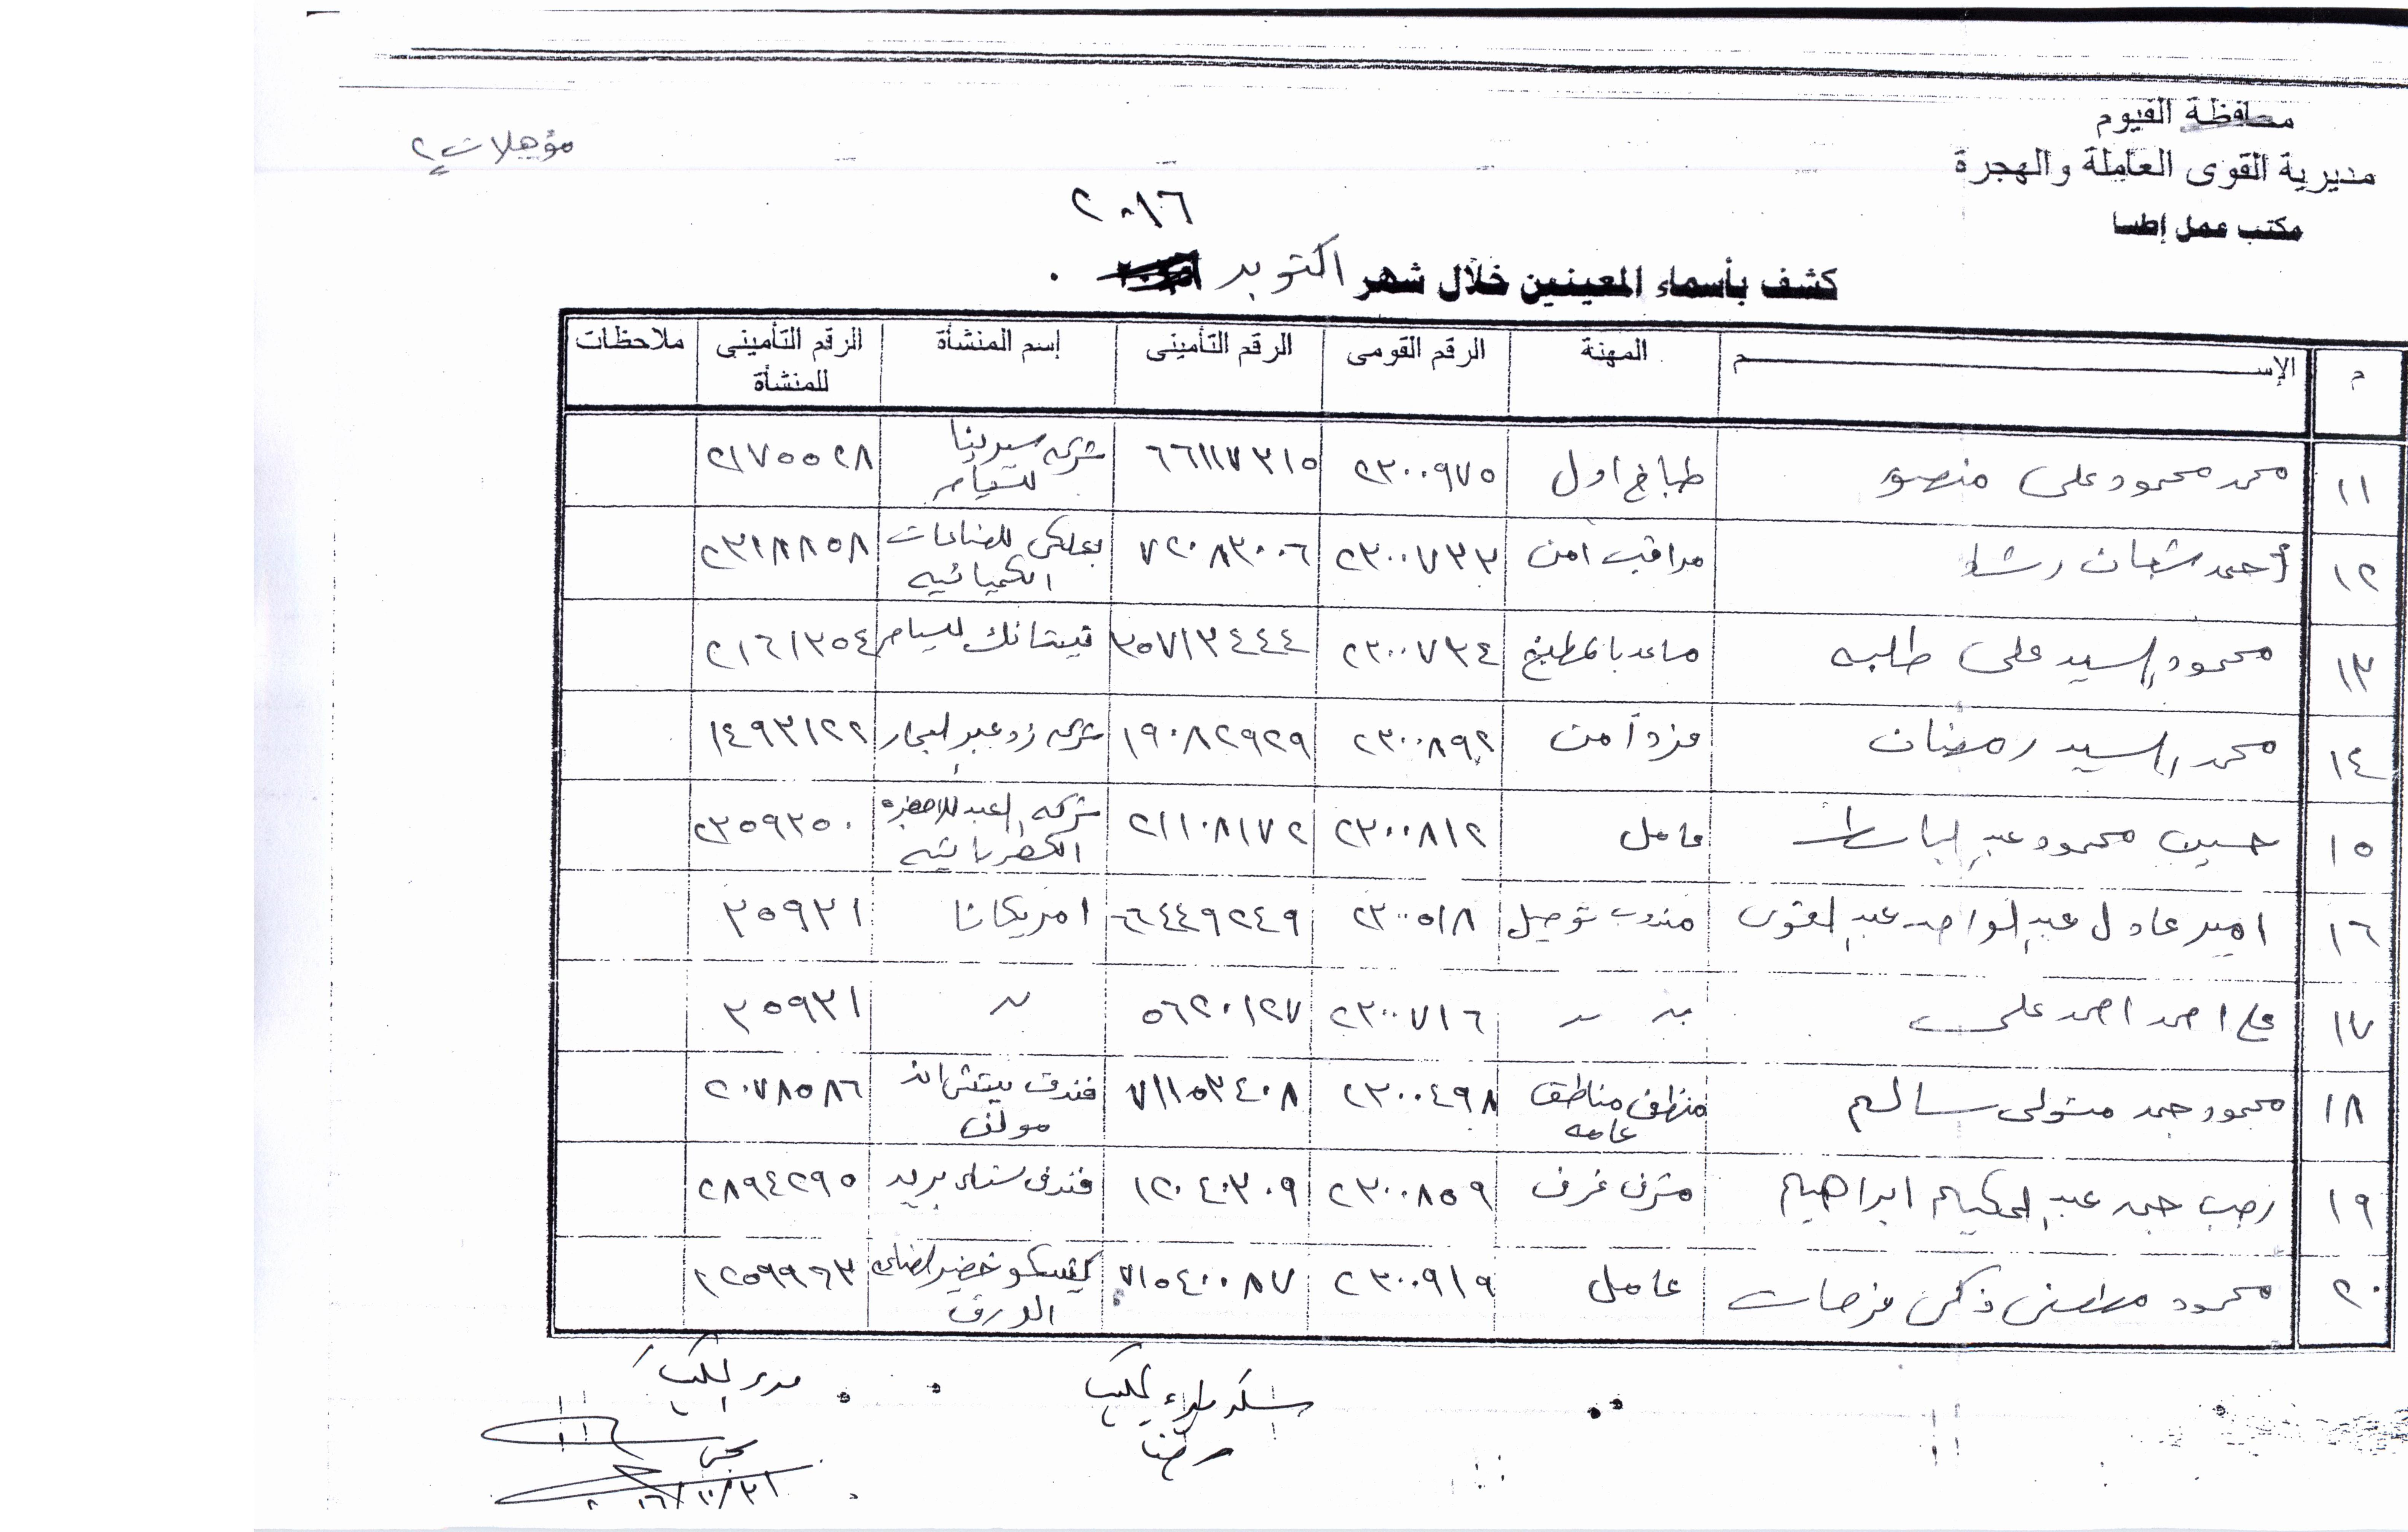 محافظة الفيوم
مديرية القوى العاملة والهجرة
مكتب عمل إطسا
مؤهلات ٢
٢٠١٦
كشف بأسماء المعينين خلال شهر اكتوبر
م الإسم المهنة الرقم القومى الرقم التأمينى إسم المنشأة الرقم التأمينى للمنشأة ملاحظات
١١ محمد محمود على منصور طباخ اول ٢٣٠٠٩٧٥ ٦٦١١٧٣١٥ شركه سيرينا ٢١٧٥٥٢٨
١٢ أحمد شعبان رشاد مراقب امن ٢٣٠٠٧٣٣ ٧٢٠٨٣٠٠٦ للصناعات الكيميائيه ٢٣١٨٨٥٨
١٣ محمود السيد على طلبه مساعد بالمطبخ ٢٣٠٠٧٣٤ ٣٥٧١٣٤٤٤ ٢١٦١٣٥٤
١٤ محمد السيد رمضان فرد أمن ٢٣٠٠٨٩٢ ١٩٠٨٢٩٢٩ شركه ١٤٩٣١٢٢
١٥ حسين محمود عبد الباسط عامل ٢٣٠٠٨١٢ ٢١١٠٨١٧٢ شركه العبد للاجهزه الكهربائيه ٢٣٥٩٣٥٠
١٦ امير عادل عبد الواحد عبد القوى مندوب توصيل ٢٣٠٠٥١٨ ٦٦٤٤٩٢٤٩ امريكانا ٣٥٩٣١
١٧ على احمد احمد على ٢٣٠٠٧١٦ ٥٦٢٠١٢٧ ٣٥٩٣١
١٨ محمود حمد متولى سالم منظف مناطق عامه ٢٣٠٠٤٩٨ ٧١١٥٣٤٠٨ فندق ٢٠٧٨٥٨٦
١٩ رجب حمد عبد الحكيم ابراهيم مشرف غرف ٢٣٠٠٨٥٩ ١٢٠٤٠٣٠٩ فندق ٢٨٩٤٢٩٥
٢٠ محمود مصطفى ذكى فرحات عامل ٢٣٠٠٩١٩ ٧١٥٤٠٠٨٧ الورق ٢٢٥٩٩٦٣
مدير المكتب
٢٠١٦/١٠/٣١